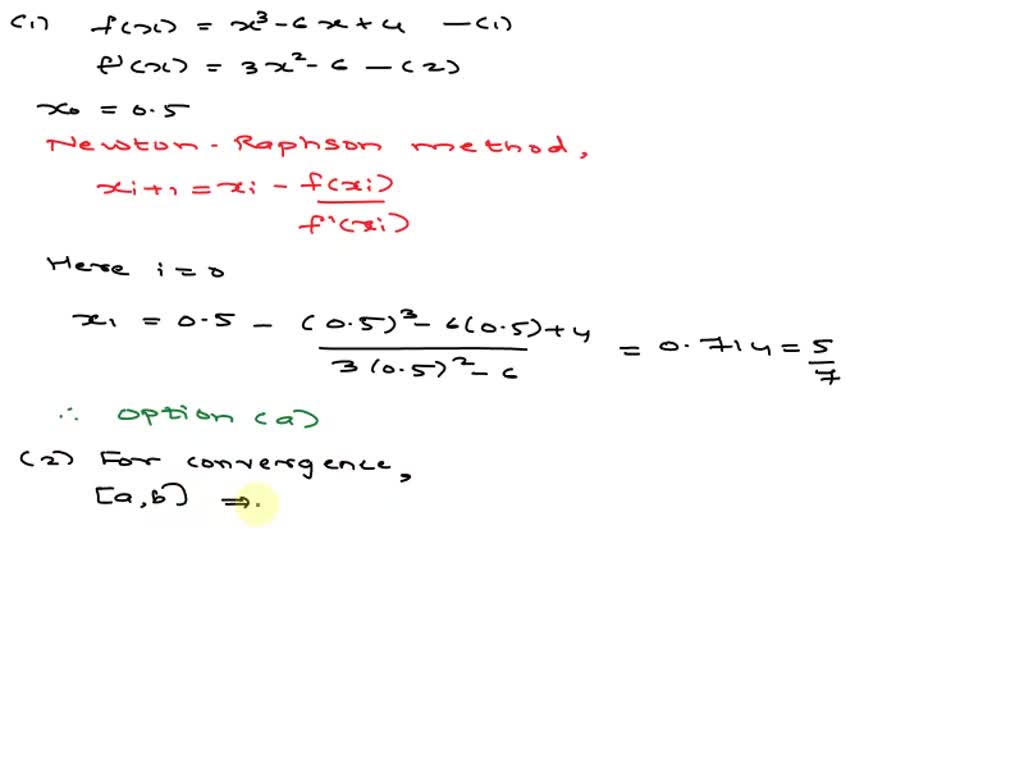 (1) f(x) = x³ - 6x + 4 — (1)
f'(x) = 3x² - 6 — (2)
x₀ = 0.5
Newton - Raphson method,
xᵢ₊₁ = xᵢ - f(xᵢ) / f'(xᵢ)
Here i = 0
x₁ = 0.5 - (0.5)³ - 6(0.5) + 4 / 3(0.5)² - 6 = 0.714 = 5/7
∴ option (a)
(2) For convergence,
[a,b] ⇒